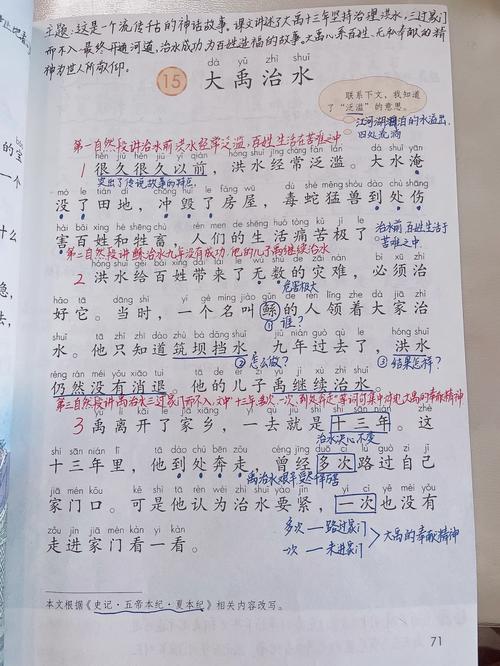 主题:这是一个流传千古的神话故事。课文讲述了大禹十三年坚持治理洪水,三过家门
而不入,最终开通河道,治水成功为百姓造福的故事。大禹心系百姓、无私奉献的精
神为世人所敬仰。
dà yǔ zhì shuǐ
15 大禹治水
联系下文,我知道
了“泛滥”的意思。
江河湖泊的水溢出,
四处流淌
第一自然段讲治水前洪水经常泛滥,百姓生活在苦难之中
hěn jiǔ hěn jiǔ yǐ qián hóng shuǐ jīng cháng fàn làn dà shuǐ yān
1 很久很久以前,洪水经常泛滥。大水淹
突出了传说故事的特点。
mò le tián dì chōng huǐ le fáng wū dú shé měng shòu dào chù shāng
没了田地,冲毁了房屋,毒蛇猛兽到处伤
hài bǎi xìng hé shēng chù rén men de shēng huó tòng kǔ jí le
害百姓和牲畜,人们的生活痛苦极了。
治水前百姓生活于
苦难之中
第二自然段讲鲧治水九年没有成功,他的儿子禹继续治水
hóng shuǐ gěi bǎi xìng dài lái le wú shù de zāi nàn bì xū zhì
2 洪水给百姓带来了无数的灾难,必须治
危害极大
hǎo tā dāng shí yí gè míng jiào gǔn de rén lǐng zhe dà jiā zhì
好它。当时,一个名叫鲧的人领着大家治
①谁?
shuǐ tā zhǐ zhī dào zhù bà dǎng shuǐ jiǔ nián guò qù le hóng shuǐ
水。他只知道筑坝挡水,九年过去了,洪水
②怎么做?
③结果怎样?
réng rán méi yǒu xiāo tuì tā de ér zi yǔ jì xù zhì shuǐ
仍然没有消退。他的儿子禹继续治水。
第三自然段讲禹治水三过家门而不入,文中“十三年、多次、一次、到处奔走”等词句集中体现大禹的奉献精神
yǔ lí kāi le jiā xiāng yí qù jiù shì shí sān nián zhè
3 禹离开了家乡,一去就是十三年。这
治水决心不变
shí sān nián lǐ tā dào chù bēn zǒu céng jīng duō cì lù guò zì jǐ
十三年里,他到处奔走,曾经多次路过自己
jiā mén kǒu kě shì tā rèn wéi zhì shuǐ yào jǐn yí cì yě méi yǒu
家门口。可是他认为治水要紧,一次也没有
zǒu jìn jiā mén kàn yí kàn
走进家门看一看。
多次——路过家门
一次——未进家门
大禹的奉献精神
本文根据《史记·五帝本纪·夏本纪》相关内容改写。
71